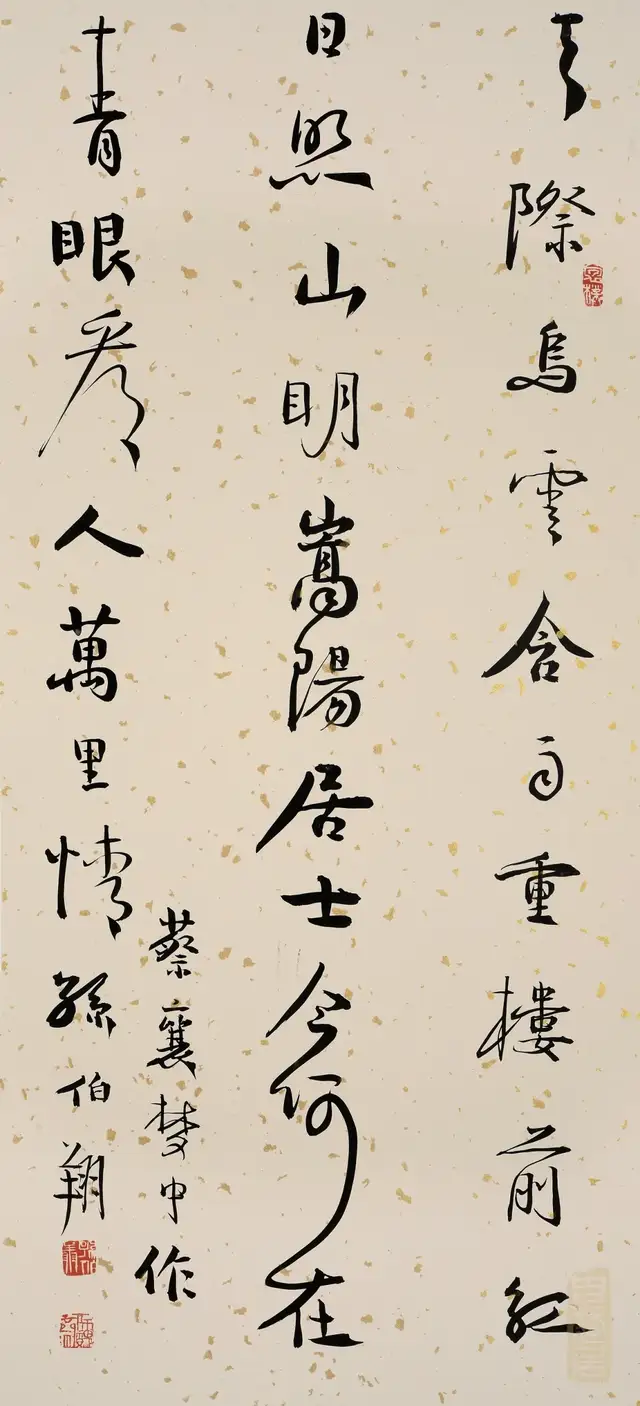 天際烏雲含雨重樓前紅
日照山明嵩陽居士今何在
青眼看人萬里情
蔡襄夢中作
孫伯翔